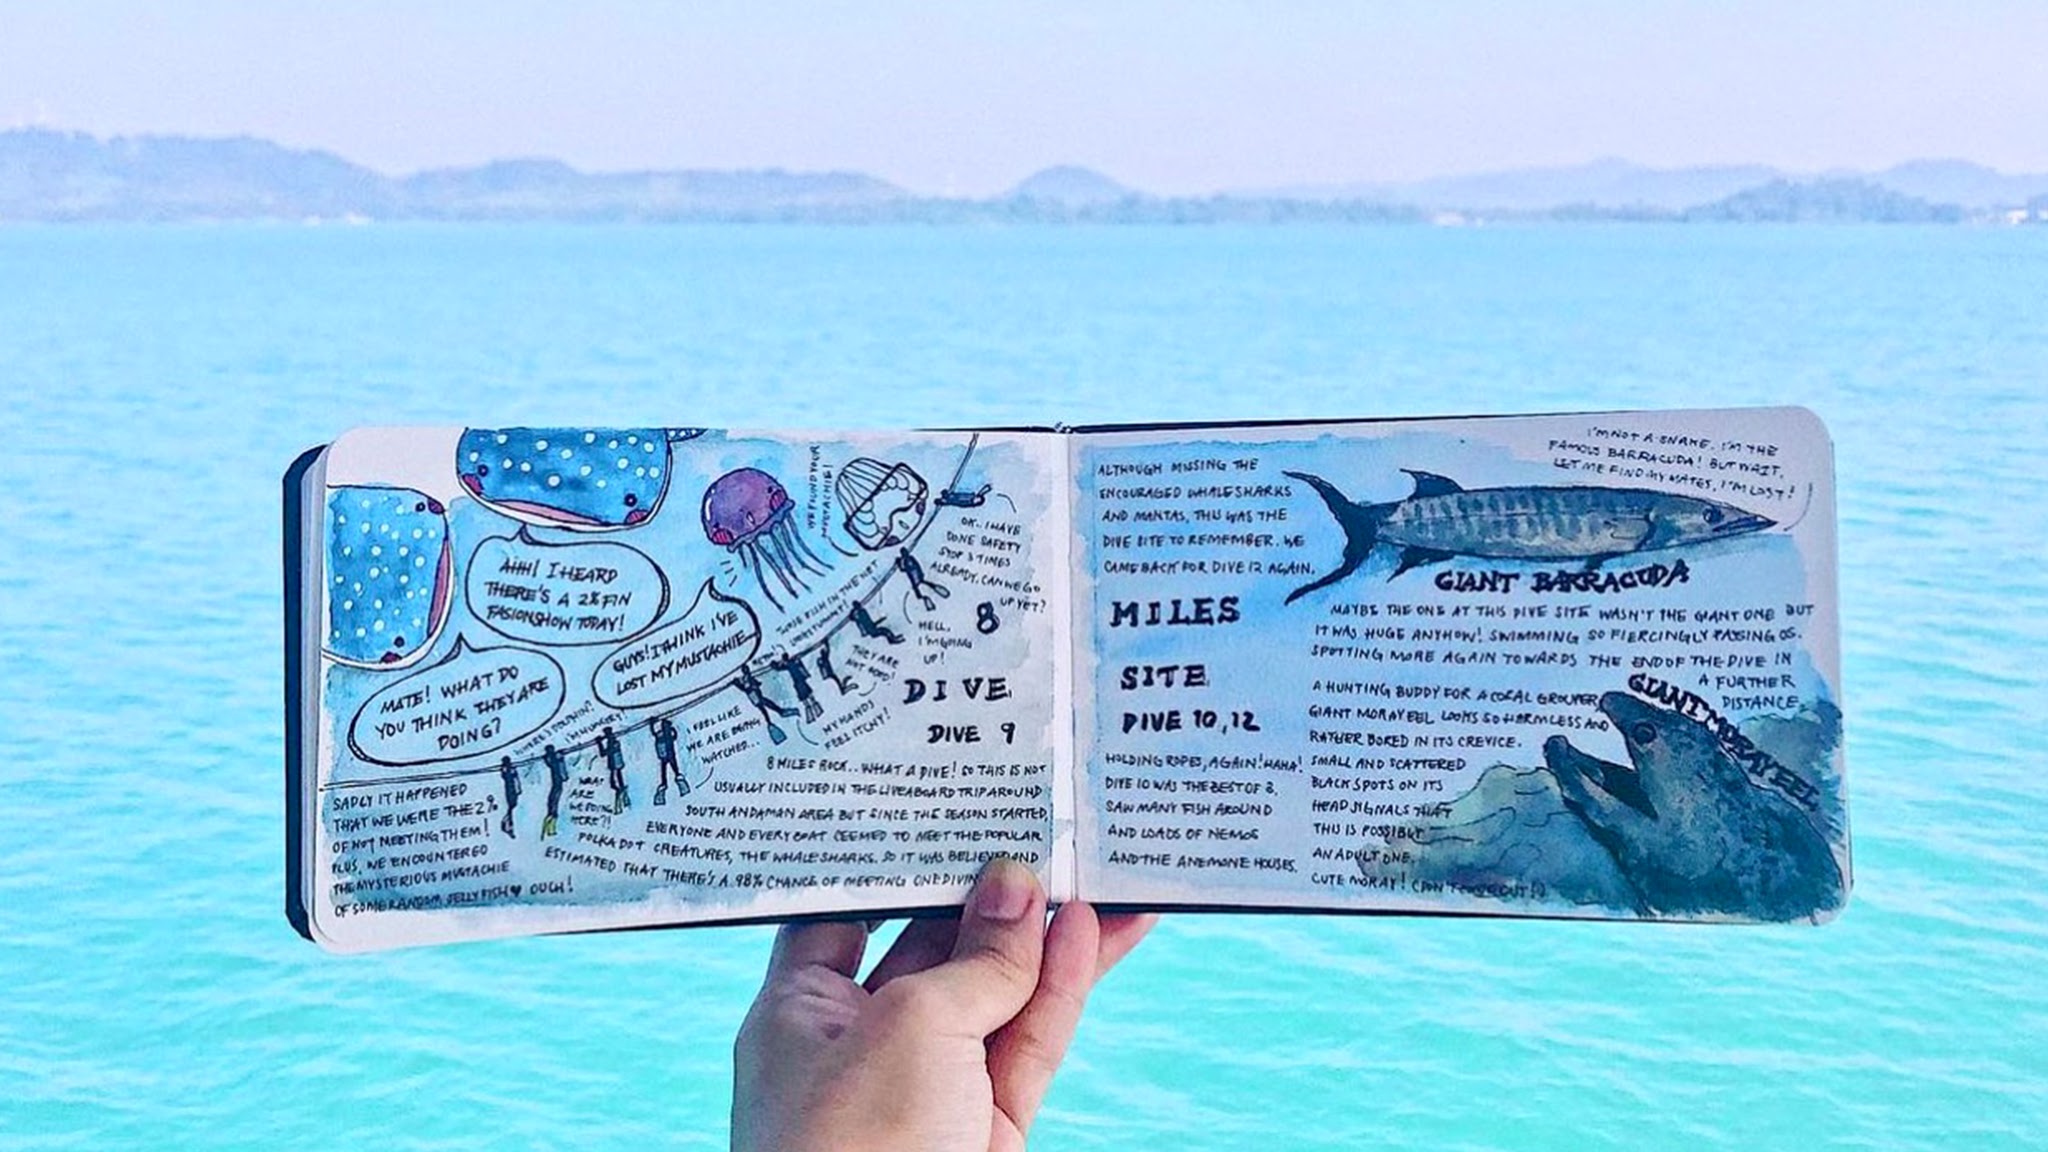 AHH! I HEARD
THERE'S A 2% FIN
FASIONSHOW TODAY!
MATE! WHAT DO
YOU THINK THEY ARE
DOING?
GUYS! I THINK I'VE
LOST MY MUSTACHIE
THOSE FISH IN THE NET
LOOKS YUMMY!
OK.. I HAVE
DONE SAFETY
STOP 3 TIMES
ALREADY. CAN WE GO
UP YET?
HELL,
I'M GOING
UP!
THEY ARE
NOT FOOD!
MY HANDS
FEEL ITCHY!
I FEEL LIKE
WE ARE BEING
WATCHED...
WHERE'S DOLPHIN?
I'M HUNGRY!
WHAT
ARE
WE DOING
HERE?!
8
DIVE
DIVE 9
SADLY IT HAPPENED
THAT WE WERE THE 2%
OF NOT MEETING THEM!
PLUS, WE ENCOUNTERED
THE MYSTERIOUS MUSTACHIE
OF SOME RANDOM JELLYFISH♥ OUCH!
8 MILES ROCK.. WHAT A DIVE! SO THIS IS NOT
USUALLY INCLUDED IN THE LIVEABOARD TRIP AROUND
SOUTH ANDAMAN AREA BUT SINCE THE SEASON STARTED,
EVERYONE AND EVERY BOAT SEEMED TO MEET THE POPULAR
POLKADOT CREATURES, THE WHALESHARKS. SO IT WAS BELIEVED AND
ESTIMATED THAT THERE'S A 98% CHANCE OF MEETING ONE DIVING
ALTHOUGH MISSING THE
ENCOURAGED WHALESHARKS
AND MANTAS, THIS WAS THE
DIVE SITE TO REMEMBER. WE
CAME BACK FOR DIVE 12 AGAIN.
MILES
SITE
DIVE 10, 12
HOLDING ROPES, AGAIN! HAHA!
DIVE 10 WAS THE BEST OF 3.
SAW MANY FISH AROUND
AND LOADS OF NEMOS
AND THE ANEMONE HOUSES.
I'M NOT A SNAKE. I'M THE
FAMOUS BARRACUDA! BUT WAIT,
LET ME FIND MY MATES, I'M LOST!
GIANT BARRACUDA
MAYBE THE ONE AT THIS DIVE SITE WASN'T THE GIANT ONE BUT
IT WAS HUGE ANYHOW! SWIMMING SO FIERCINGLY PASSING US.
SPOTTING MORE AGAIN TOWARDS THE END OF THE DIVE IN
A FURTHER
DISTANCE.
GIANT MORAY EEL
A HUNTING BUDDY FOR A CORAL GROUPER
GIANT MORAY EEL LOOKS SO HARMLESS AND
RATHER BORED IN ITS CREVICE.
SMALL AND SCATTERED
BLACK SPOTS ON ITS
HEAD SIGNALS THAT
THIS IS POSSIBLY
AN ADULT ONE.
CUTE MORAY! (DON'T COME OUT!)